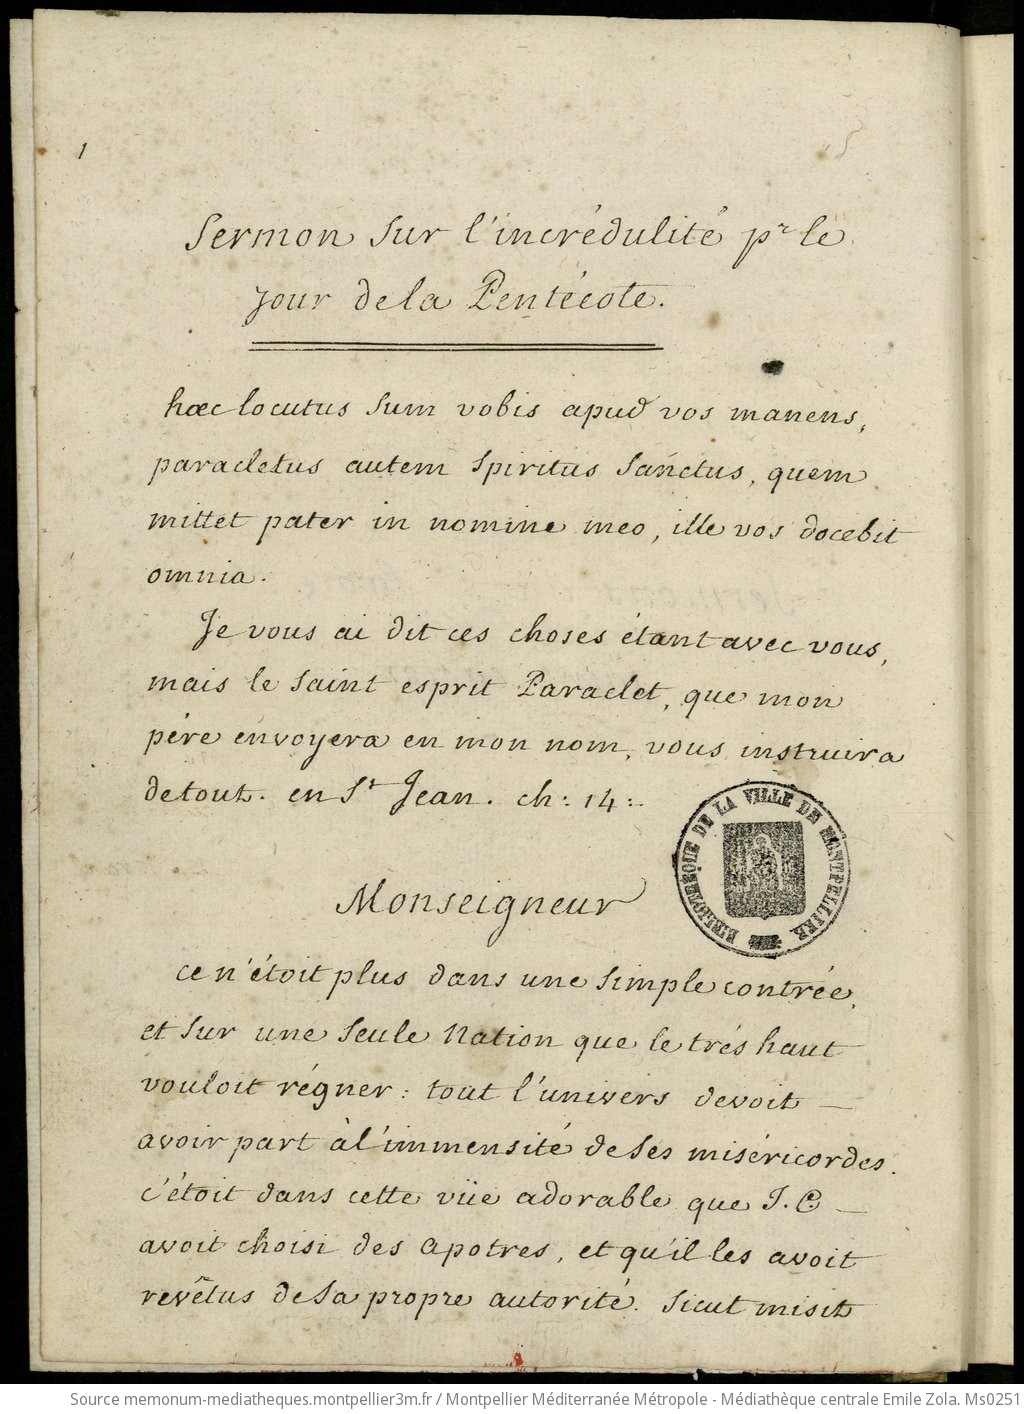 1
Sermon sur l'incrédulité pr le
jour de la Pentécote.
hæc locutus sum vobis apud vos manens,
paracletus autem spiritus sanctus, quem
mittet pater in nomine meo, ille vos docebit
omnia.
Je vous ai dit ces choses étant avec vous,
mais le saint esprit Paraclet, que mon
pére envoyera en mon nom, vous instruira
de tout. en St Jean. ch: 14:
BIBLIOTHEQUE DE LA VILLE DE MONTPELLIER
Monseigneur
ce n'étoit plus dans une simple contrée,
et sur une seule Nation que le trés haut
vouloit régner: tout l'univers devoit —
avoir part à l'immensité de ses miséricordes.
c'étoit dans cette vüe adorable que J. C —
avoit choisi des apotres, et qu'il les avoit
revêtus de sa propre autorité. sicut misit
Source memonum-mediatheques.montpellier3m.fr / Montpellier Méditerranée Métropole - Médiathèque centrale Emile Zola. Ms0251